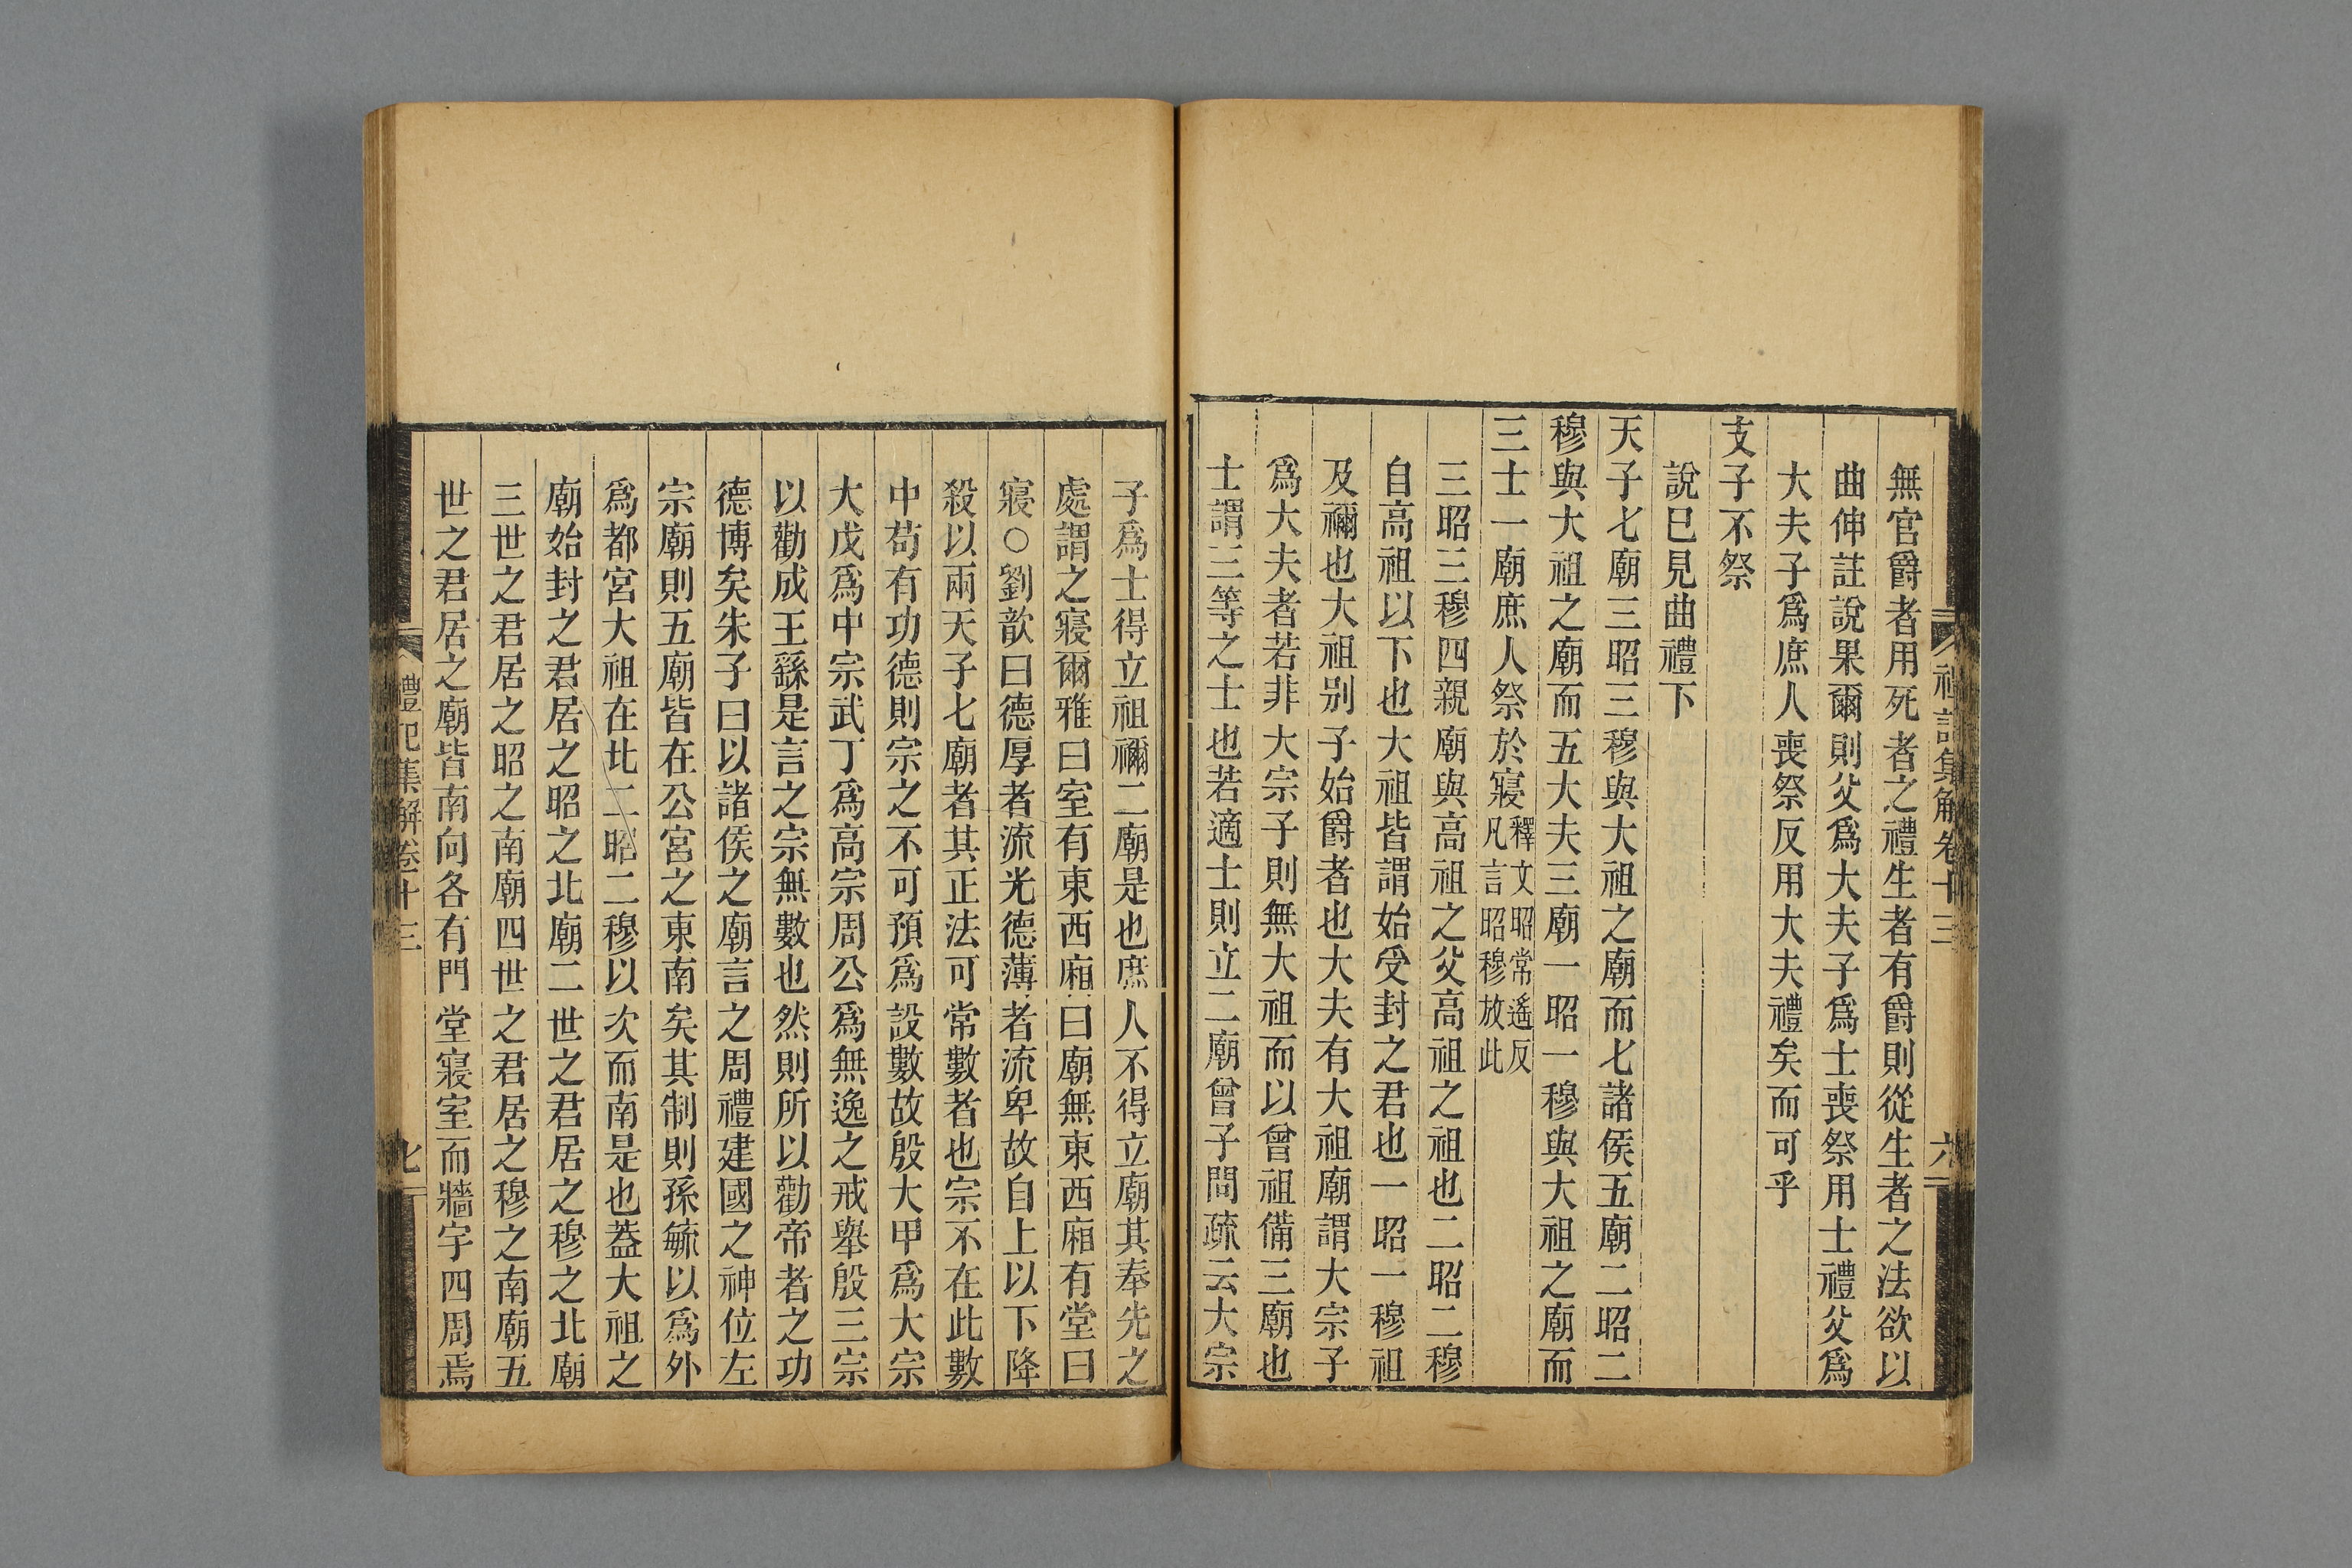 禮記集解卷十三
六
無官爵者用死者之禮生者有爵則從生者之法欲以
曲伸註說果爾則父爲大夫子爲士喪祭用士禮父爲
大夫子爲庶人喪祭反用大夫禮矣而可乎
支子不祭
說已見曲禮下
天子七廟三昭三穆與大祖之廟而七諸侯五廟二昭二
穆與大祖之廟而五大夫三廟一昭一穆與大祖之廟而
三士一廟庶人祭於寢釋文昭常遙反凡言昭穆放此
三昭三穆四親廟與高祖之父高祖之祖也二昭二穆
自高祖以下也大祖皆謂始受封之君也一昭一穆祖
及禰也大祖别子始爵者也大夫有大祖廟謂大宗子
爲大夫者若非大宗子則無大祖而以曾祖備三廟也
士謂三等之士也若適士則立二廟曾子問疏云大宗
子爲士得立祖禰二廟是也庶人不得立廟其奉先之
處謂之寢爾雅曰室有東西廂曰廟無東西廂有堂曰
寢○劉歆曰德厚者流光德薄者流卑故自上以下降
殺以兩天子七廟者其正法可常數者也宗不在此數
中苟有功德則宗之不可預爲設數故殷大甲爲大宗
大戊爲中宗武丁爲高宗周公爲無逸之戒舉殷三宗
以勸成王繇是言之宗無數也然則所以勸帝者之功
德博矣朱子曰以諸侯之廟言之周禮建國之神位左
宗廟則五廟皆在公宮之東南矣其制則孫毓以爲外
爲都宮大祖在北二昭二穆以次而南是也蓋大祖之
廟始封之君居之昭之北廟二世之君居之穆之北廟
三世之君居之昭之南廟四世之君居之穆之南廟五
世之君居之廟皆南向各有門堂寢室而牆宇四周焉
禮記集解卷十三
七